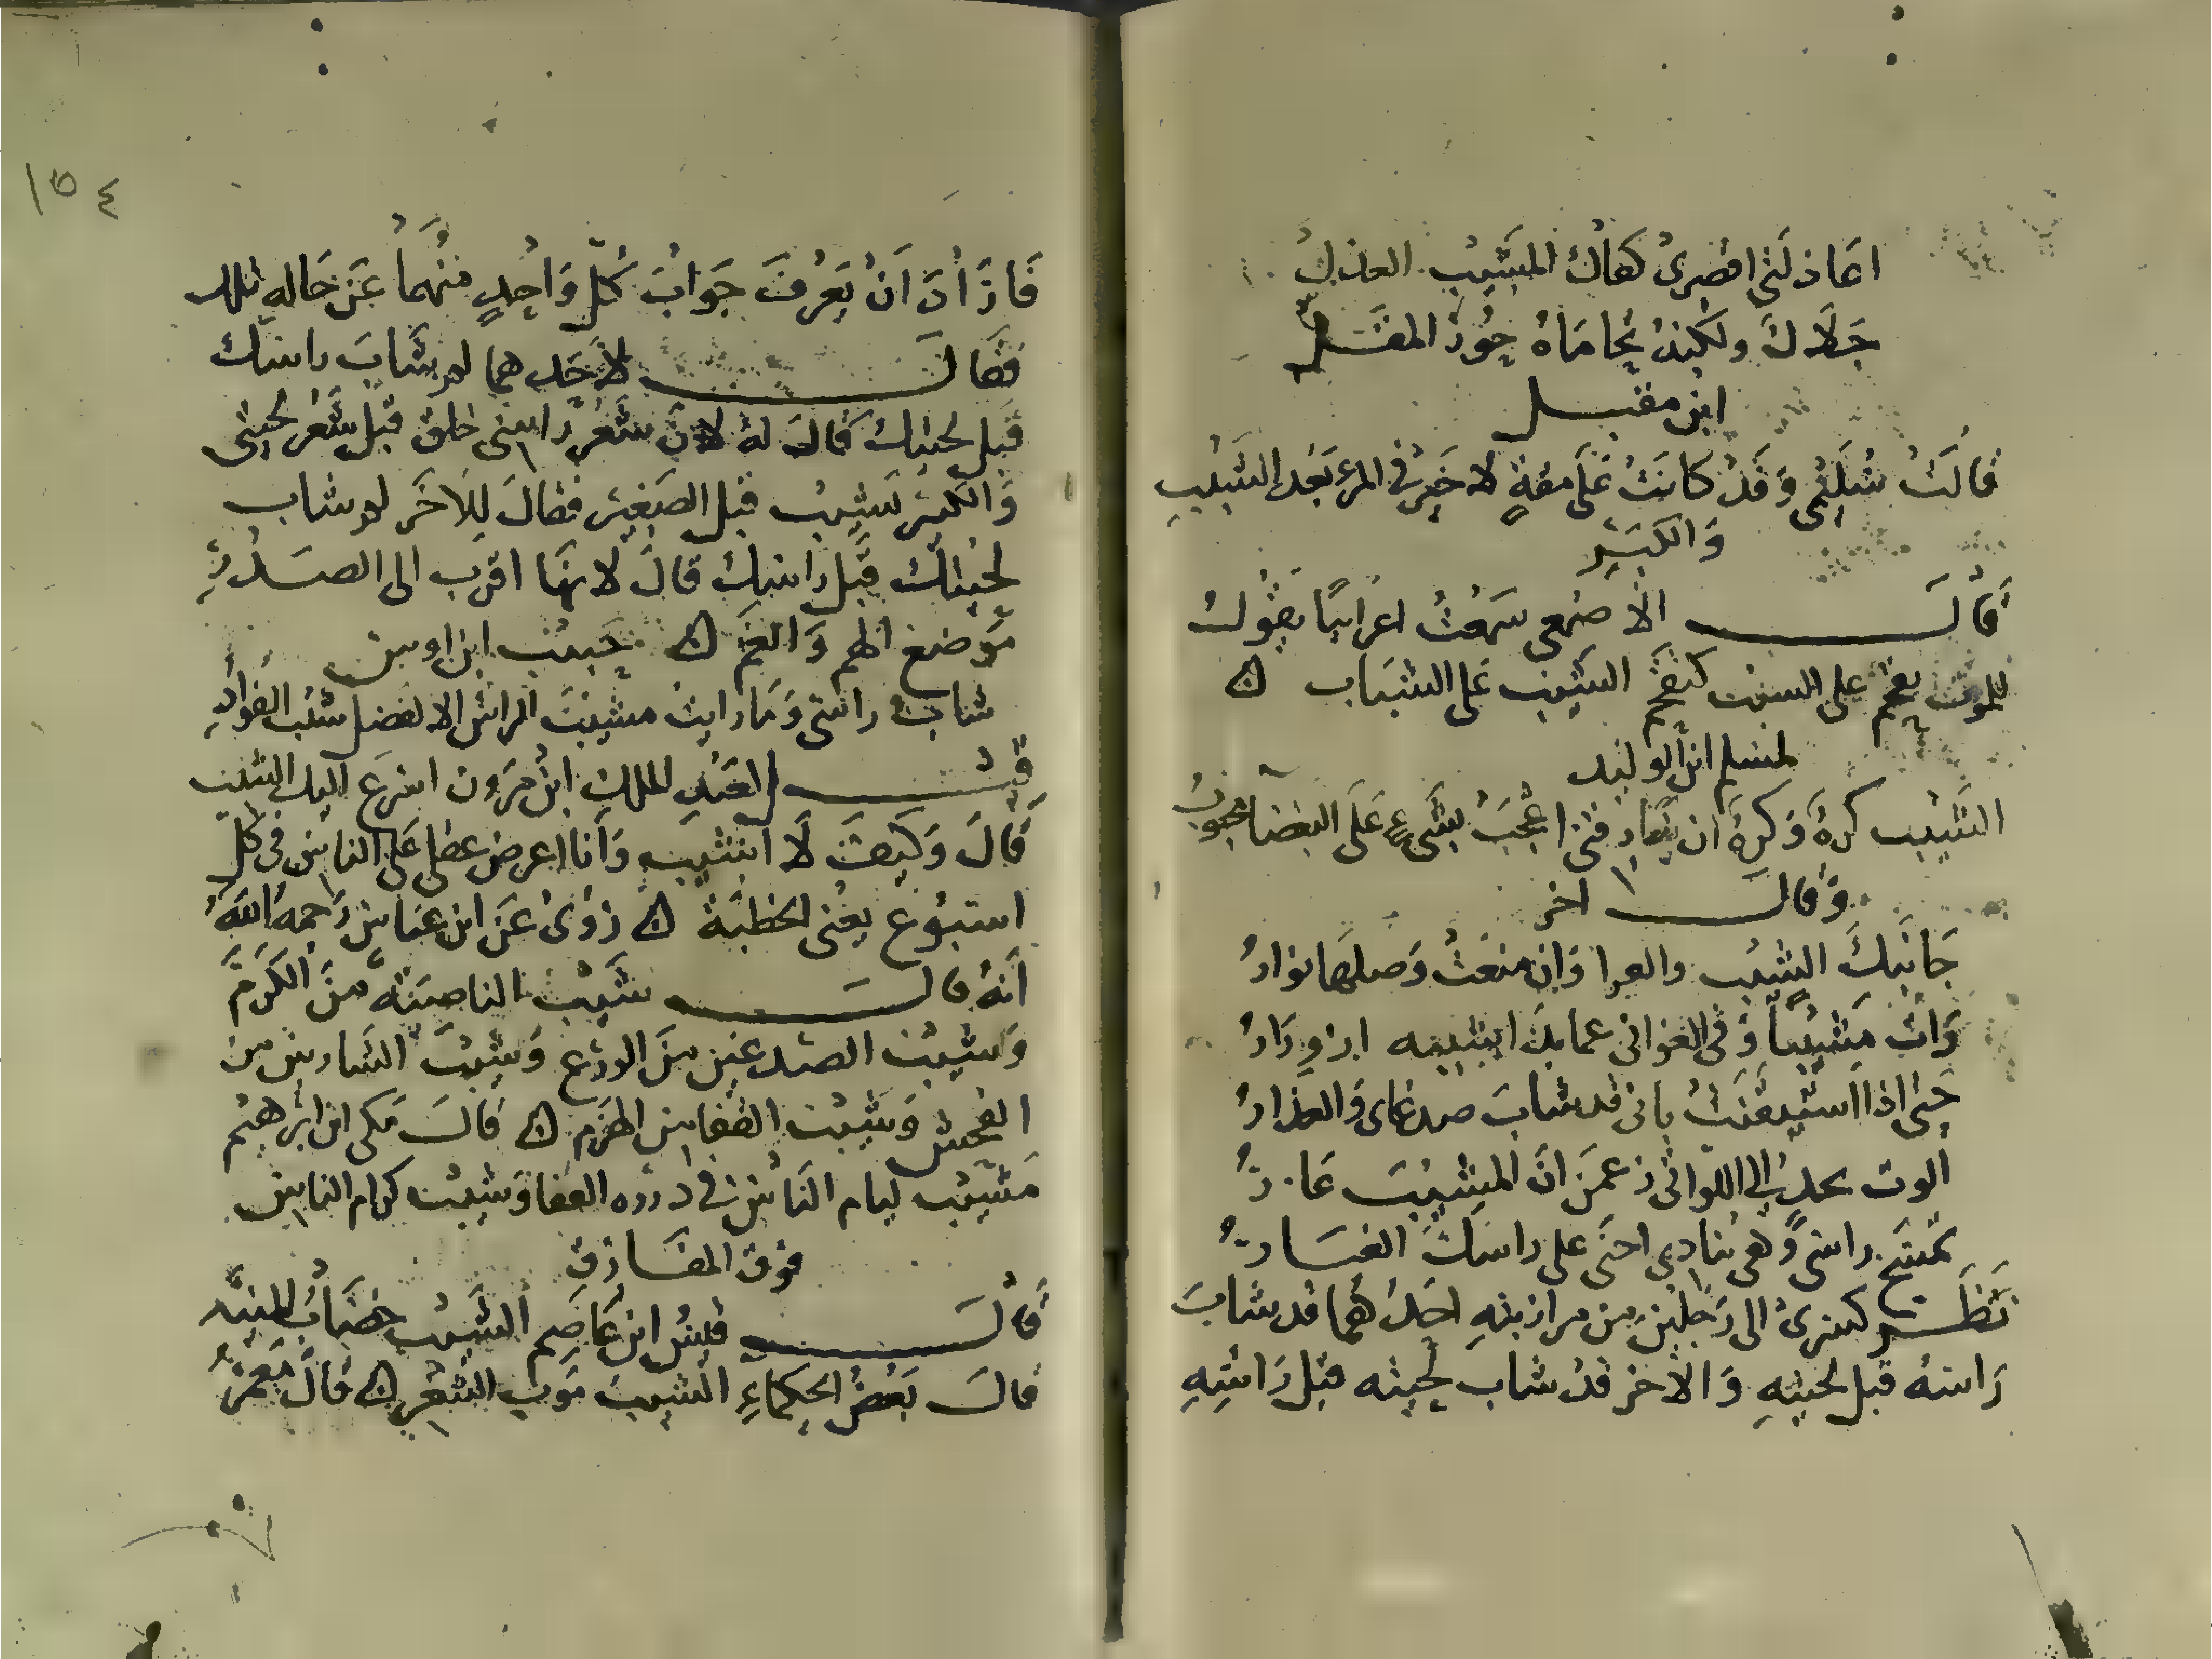 اعاذلتي اقصري كفاك المشيب العذل
جلالة ولكنه تحاماه حور المقل
ابن مقبل
قالت سليمى وقد كانت على مقة لا خير في المرء بعد الشيب
والكبر
قال الاصمعي سمعت اعرابيا يقول
للموت يقحم على السبت كتقحم الشيب على الشباب ه
لمسلم ابن الوليد
الشيب كره وكره ان يفارقني اعجب بشيء على البغضا محبوب
وقال اخر
جانبك الشيب وان منعت وصلها نوار
رات مشيبا وفي الغواني عمابك ابشيبه ازورار
حتى اذا استيقنت باني قد شاب صدغاي والعذار
الوت اللواتي زعمن ان المشيب عار
تمسح راسي وهي تنادي احتى على راسك الغبار
نظر كسرى الى رجلين من مرازبته احدهما قد شاب
راسه قبل لحيته والاخر قد شاب لحيته قبل راسه
١٥٤
فاراد ان يعرف جواب كل واحد منهما عن حاله تلك
فقال لاحدهما لم شاب راسك
قبل لحيتك قال له لان شعر راسي خلق قبل شعر لحيتي
والكبير يشيب قبل الصغير فقال للاخر لم شاب
لحيتك قبل راسك قال لانها اقرب الى الصدر
موضع الهم والغم ه حبيب ابن اوس
شاب راسي وما رايت مشيب الراس الا لفضل شيب الفواد
قيل لعبد الملك ابن مرون اسرع اليك الشيب
قال وكيف لا اشيب وانا اعرض عقلي على الناس في كل
اسبوع يعني الخطبة ه روي عن ابن عباس رحمه الله
انه قال شيب الناصية من الكرم
وشيب الصدغين من الورع وشيب الشارب من
الفحش وشيب القفا من الهرم ه قال مكي ابن ابرهيم
مشيب ليام الناس في القفا وشيب كرام الناس
فوق المفارق
قال قيس ابن عاصم الشيب خضاب المنية
قال بعض الحكماء الشيب موت الشعر ه قال معمر